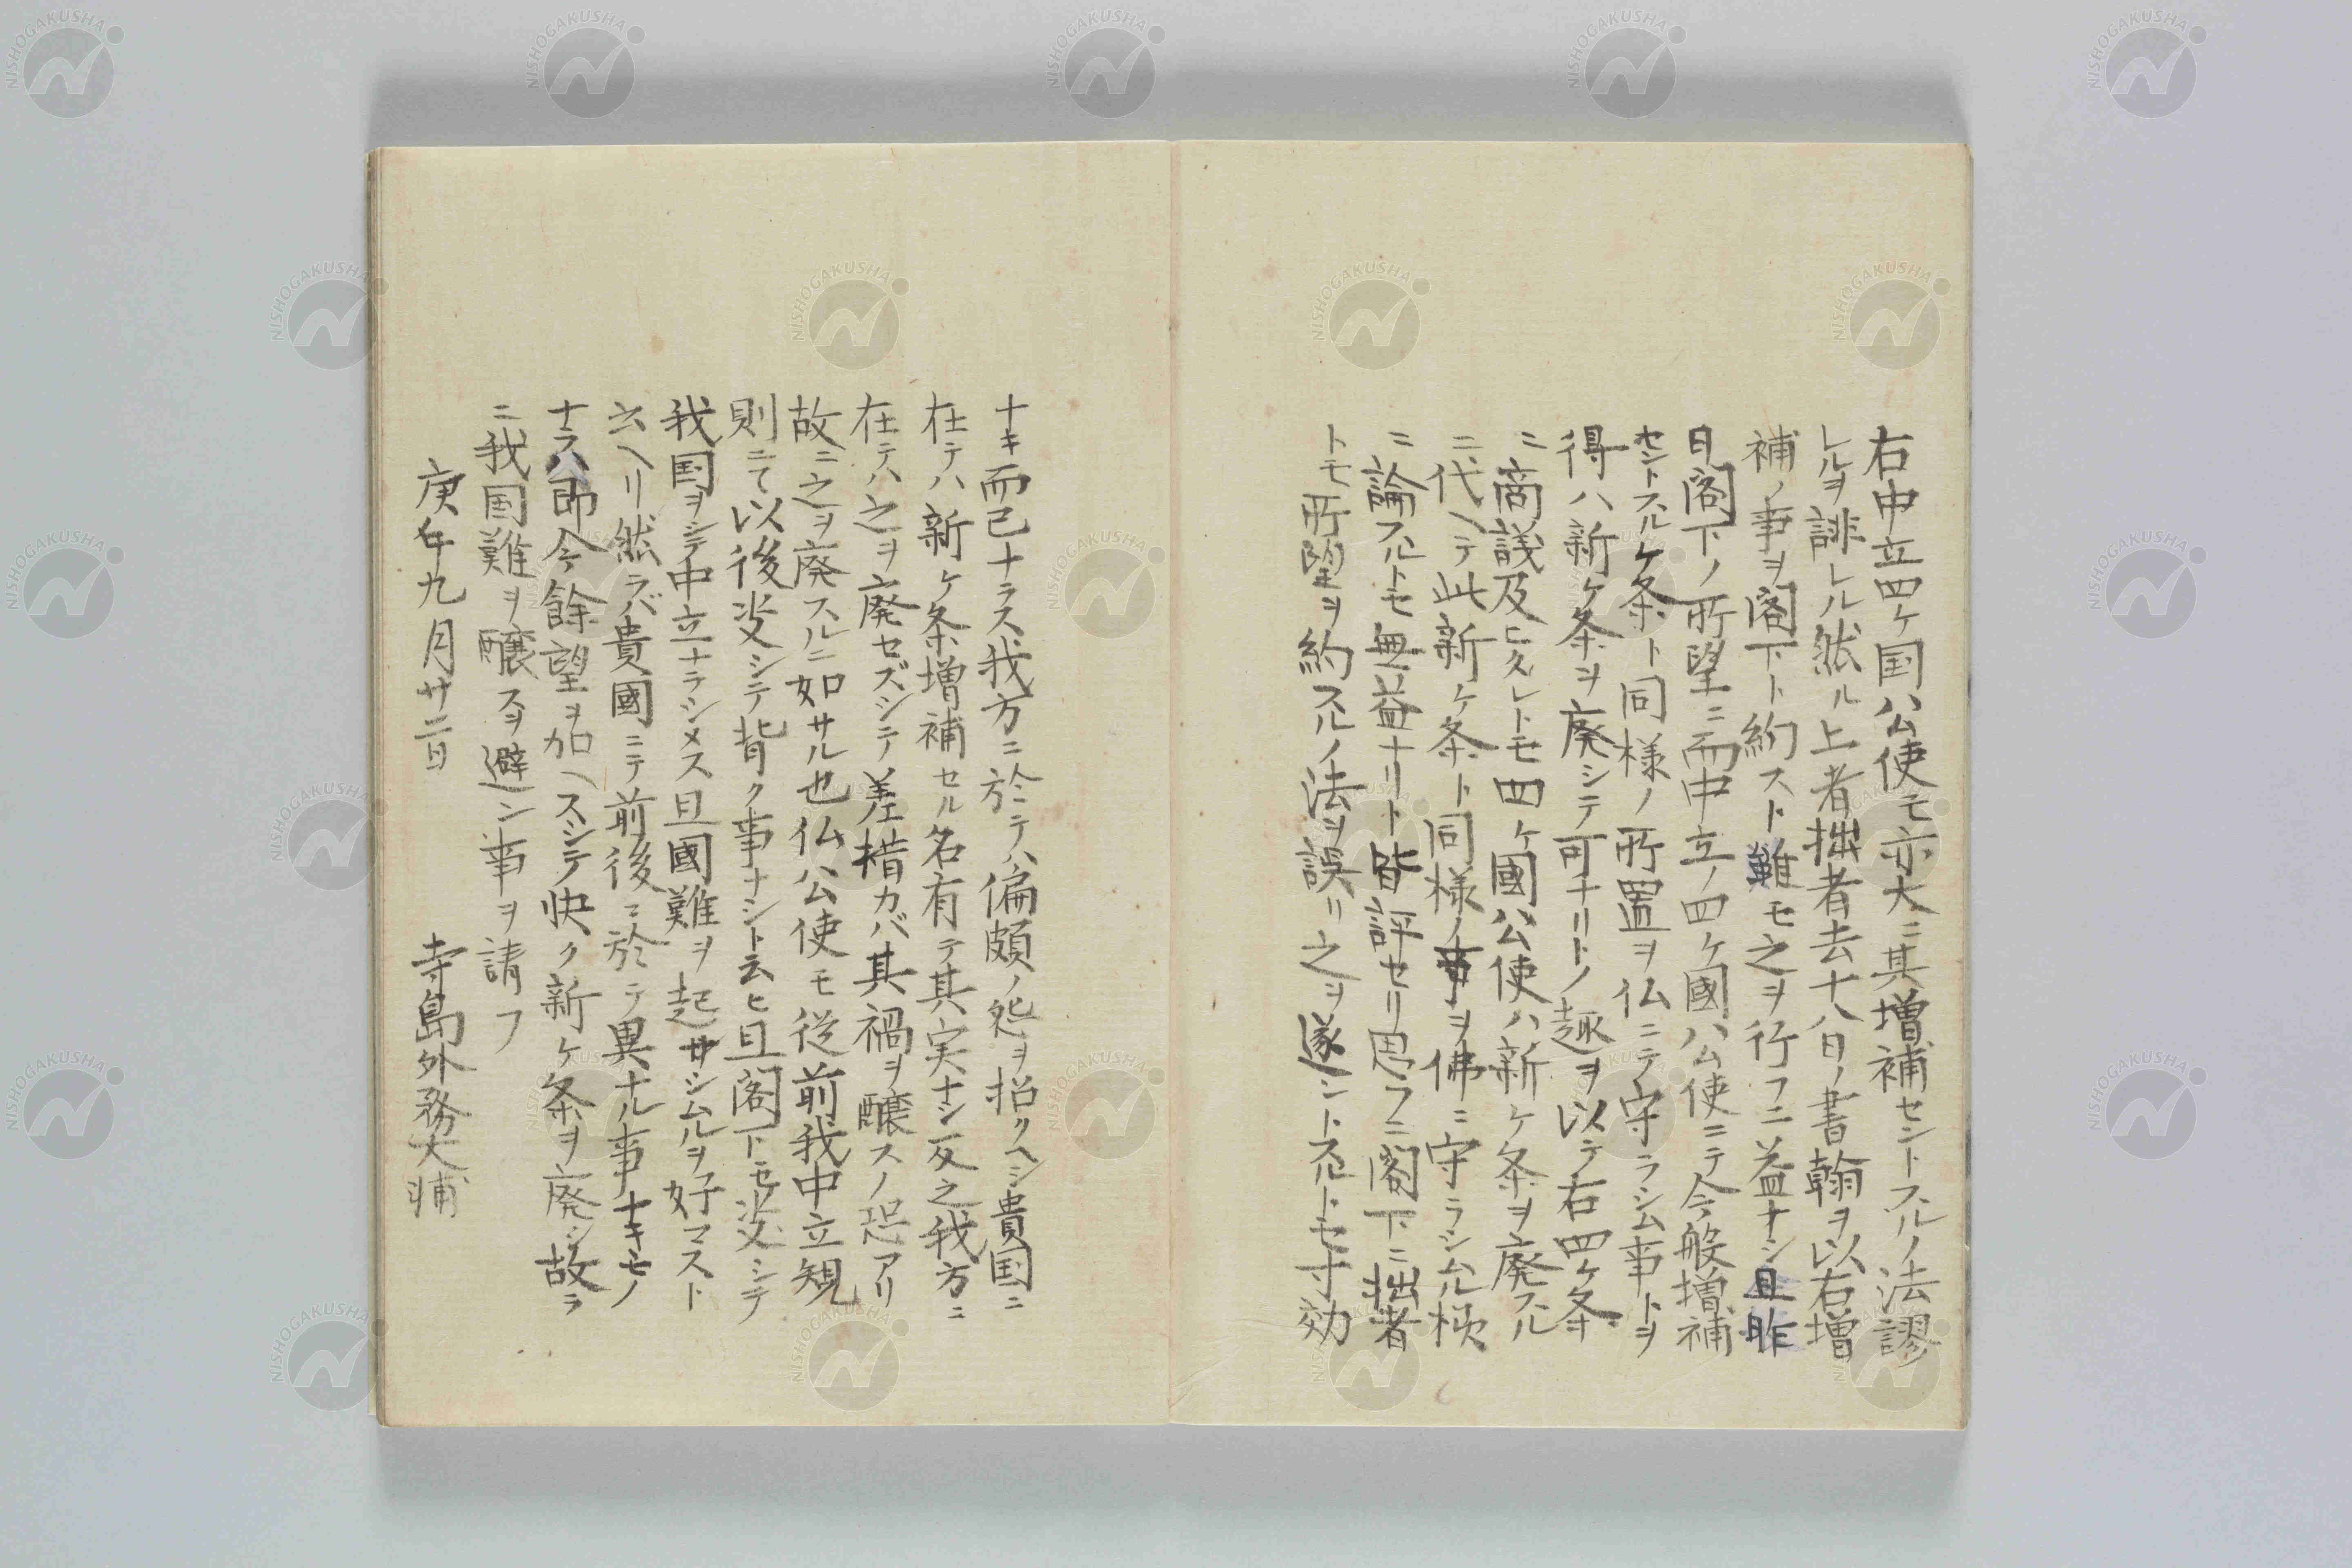 右中立四ケ国公使モ亦大ニ其増補セントスルノ法謬
レルヲ誹レル然ル上者拙者去十八日ノ書翰ヲ以右増
補ノ事ヲ閣下ト約スト難モ之ヲ行フニ益ナシ且昨
日閣下ノ所望ニ而中立ノ四ケ國公使ニテ今般増補
セントスルケ条ト同様ノ所置ヲ仏ニテ守ラシム事トヲ
得ハ新ケ条ヲ廃シテ可ナリトノ趣ヲ以テ右四ケ条
ニ商議及ヒタレトモ四ケ國公使ハ新ケ条ヲ廃スル
ニ代ヘテ此新ケ条ト同様ノ事ヲ佛ニ守ラシムル様
ニ論スルトモ無益ナリト皆評セリ思フニ閣下ニ拙者
トモ所望ヲ約スルノ法ヲ誤リ之ヲ遂ントスルトモ寸効
ナキ而已ナラス我方ニ於テハ偏頗ノ怨ヲ招クヘシ貴国ニ
在テハ新ケ条増補セル名有テ其実ナシ反之我方ニ
在テハ之ヲ廃セズシテ差措カバ其禍ヲ醸スノ恐アリ
故ニ之ヲ廃スルニ如サル也仏公使モ従前我中立規
則ニて以後決シテ背ク事ナシト云ヒ且閣下モ決シテ
我国ヲシテ中立ナラシメス且國難ヲ起サシムルヲ好マスト
云ヘリ然ラバ貴國ニテ前後ニ於テ異ナル事ナキモノ
ナラハ即今餘望ヲ加ヘスシテ快ク新ケ条ヲ廃シ故ラ
ニ我国難ヲ醸スヲ避ン事ヲ請フ
庚午九月廿二日 寺島外務大輔
NISHOGAKUSHA